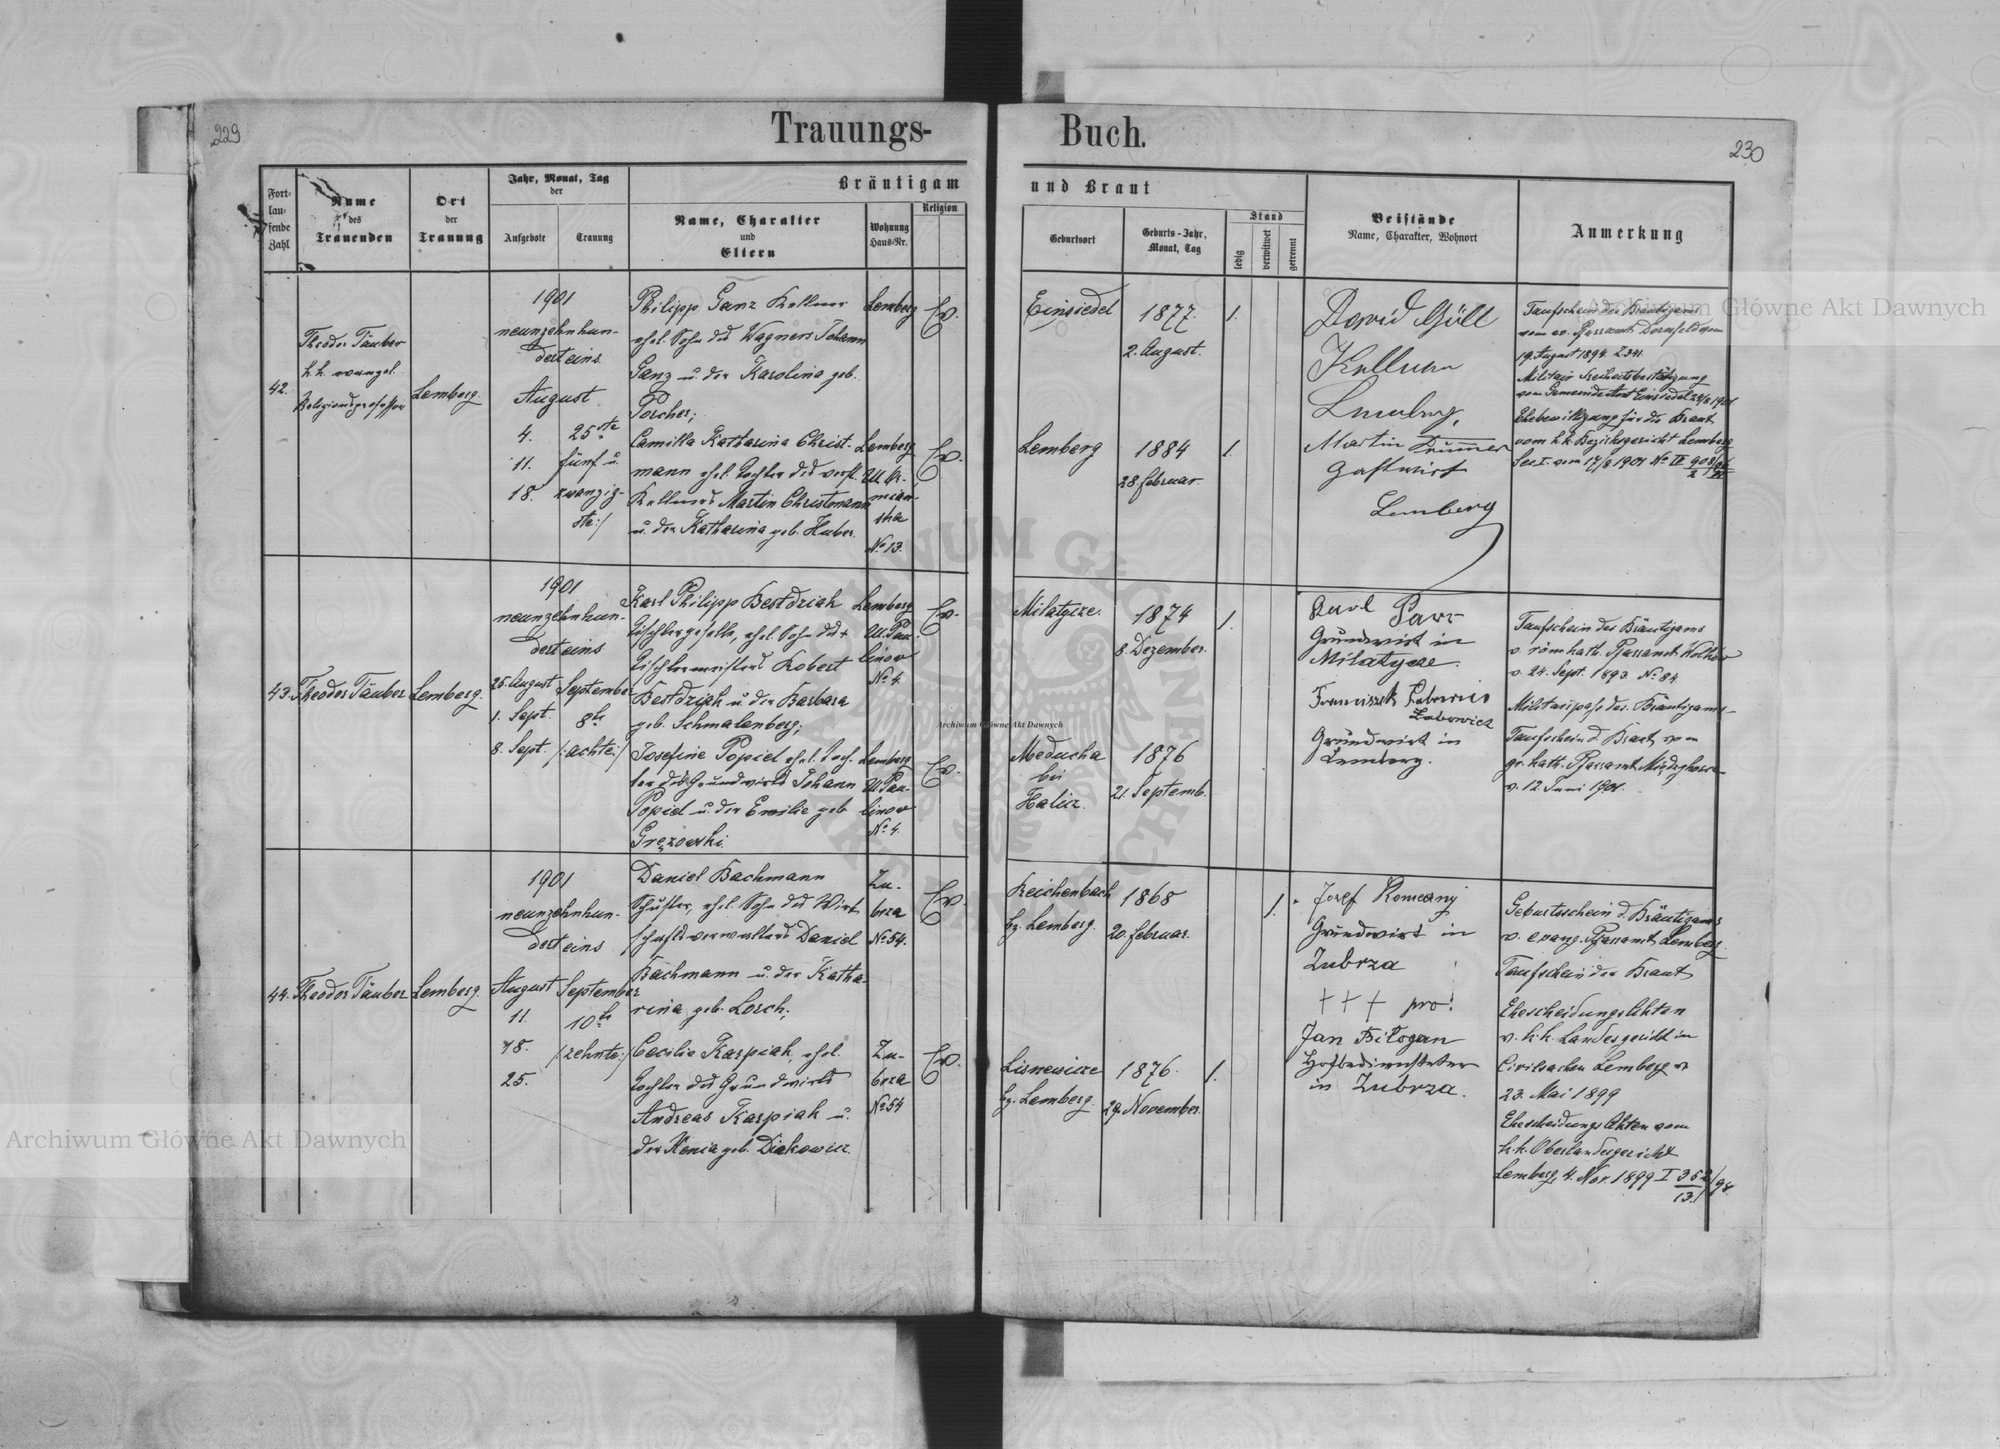 229
Trauungs-
Buch.
230
Fort-
lau-
fende
Zahl
Name
des
Trauenden
Ort
der
Trauung
Jahr, Monat, Tag
der
Aufgebote
Trauung
Bräutigam
Name, Charakter
und
Eltern
Wohnung
Haus-Nr.
Religion
und Braut
Geburtsort
Geburts-Jahr,
Monat, Tag
Stand
ledig
verwitwet
getrennt
Beistände
Name, Charakter, Wohnort
Anmerkung
42.
Theodor Täuber
k.k. evangel.
Religionsprofessor
Lemberg.
1901
neunzehnhun-
dert eins
August
4. 25ste
11. fünf u.
18. zwanzig-
ste:/
Philipp Ganz Kellner
ehel. Sohn des Wagners Johann
Ganz u. der Karolina geb.
Porcher;
Lemberg
Ev.
Camilla Katharina Christ-
mann ehel. Tochter des verst.
Kellners Martin Christmann
u. der Katharina geb. Huber.
Lemberg
No 13.
Ev.
Einsiedel
1877.
2. August.
1.
Lemberg
1884
28. Februar
1.
David Göll
Kellner
Lemberg,
Martin Drummer
Gastwirt
Lemberg
Taufschein des Bräutigams
vom ev. Pfarramte Dornfeld vom
19. August 1894 Z 341
Militär Freiheitsbestätigung
vom Gemeinde Amt Einsiedel
Ehebewilligung für die Braut
vom k.k. Bezirksgericht Lemberg
Sec I. vom 17/8 1901 No IV
43.
Theodor Täuber
Lemberg.
1901
neunzehnhun-
dert eins
25. August September
1. Sept. 8te
8. Sept. /:achte:/
Karl Philipp Bestdziak
Tischlergeselle, ehel. Sohn des +
Tischlermeisters Robert
Bestdziak u. der Barbara
geb. Schmalenberg;
Lemberg
Ul. Pau-
linow
No 4.
Ev.
Josefine Popiel ehel. Toch-
ter des Grundwirts Johann
Popiel u. der Emilie geb.
Gręzowski.
Lemberg
Ul. Pau-
linow
No 4.
Ev.
Milatycze.
1874
8. Dezember.
1.
Meducha
bei
Halicz.
1876
21 Septemb.
Karl Parr
Grundwirt in
Milatycze.
Franciszek
Zubowicz
Grundwirt in
Lemberg.
Taufschein des Bräutigams
v. röm. kath. Pfarramt
v. 24. Sept. 1893 No 84.
Militärpass des Bräutigams-
Taufschein d. Braut vom
gr. kath. Pfarramt
v. 12 Juni 1901.
44.
Theodor Täuber
Lemberg.
1901
neunzehnhun-
dert eins
August September
11. 10te
18. /:zehnte:/
25.
Daniel Bachmann
Schuster, ehel. Sohn des Wirt-
schaftsverwalters Daniel
Bachmann u. der Katha-
rina geb. Lorch;
Zu-
brza
No 54.
Ev.
Cecilie Karpiak, ehel.
Tochter des Grundwirts
Andreas Karpiak u.
der Xenia geb. Diakowicz.
Zu-
brza
No 54
Ev.
Reichenbach
bz. Lemberg.
1868
20. Februar.
1.
Lisniewicze
bz. Lemberg.
1876.
29. November.
1.
Josef Romcany
Grundwirt in
Zubrza
+++ pro.
Jan Biłogan
in Zubrza.
Geburtsschein d. Bräutigams
v. evang. Pfarramt Lemberg.
Taufschein der Braut
Ehescheidungs Akten
v. k.k. Landesgericht in
Civilsachen Lemberg v
23. Mai 1899
Ehescheidungs Akten vom
k.k. Oberlandesgericht
Lemberg, 4. Nov. 1899 I 352/13/98
Archiwum Główne Akt Dawnych
Archiwum Główne Akt Dawnych
Archiwum Główne Akt Dawnych